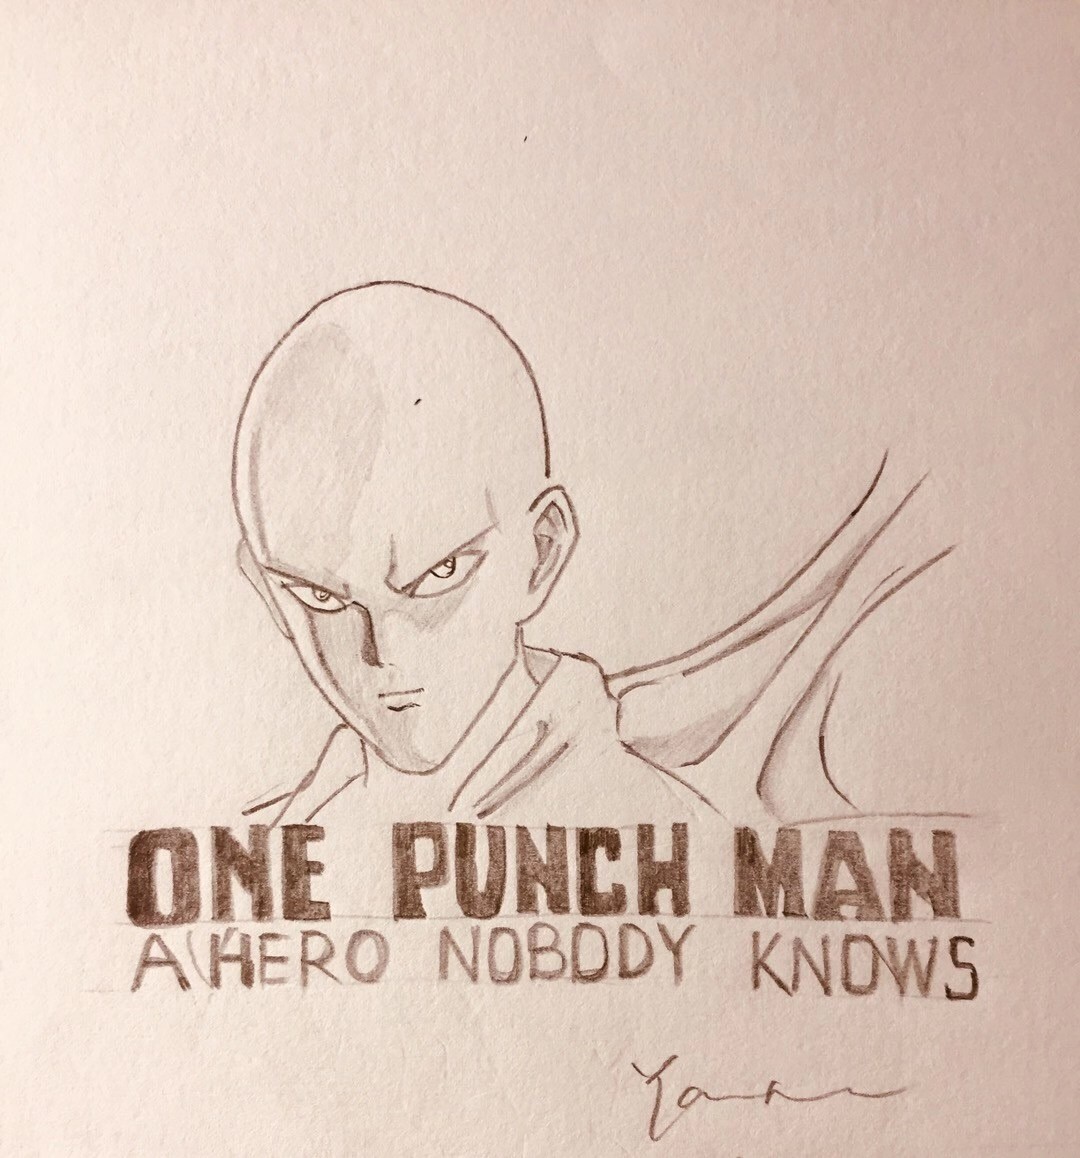 ONE PUNCH MAN
A HERO NOBODY KNOWS